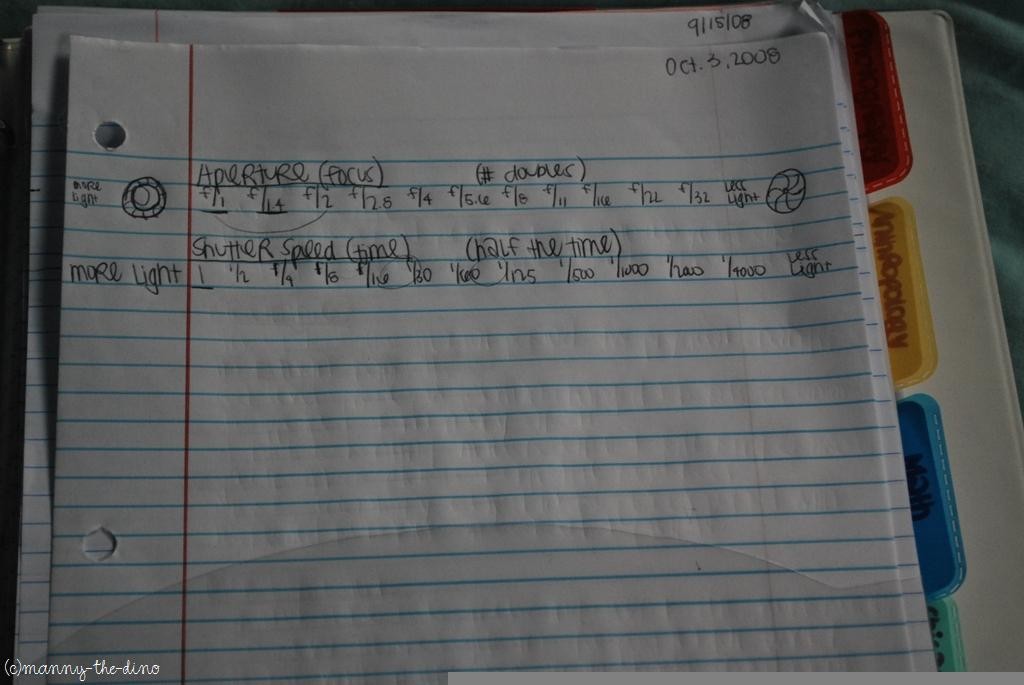 9/15/08
Oct. 3, 2008
Aperture (focus) (# doubles)
more light f/1 f/1.4 f/2 f/2.8 f/4 f/5.6 f/8 f/11 f/16 f/22 f/32 Less Light
Shutter Speed (time) (half the time)
more Light 1 1/2 f/4 f/8 f/16 1/30 1/60 1/125 1/500 1/1000 1/2000 1/4000 Less Light
Photography
Anthropology
Math
(c)manny-the-dino